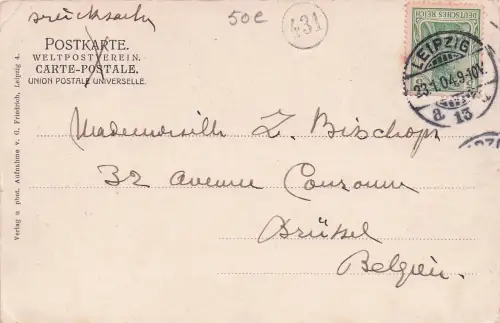 Drucksache
50€
431
POSTKARTE.
WELTPOSTVEREIN.
CARTE-POSTALE.
UNION POSTALE UNIVERSELLE.
DEUTSCHES REICH
LEIPZIG
23.1.04.9-10V.
a 13
Mademoiselle Z. Bisschop
32 avenue Couronne
Brüssel
Belgien.
Verlag u phot. Aufnahme v. G. Friedrich, Leipzig 4.